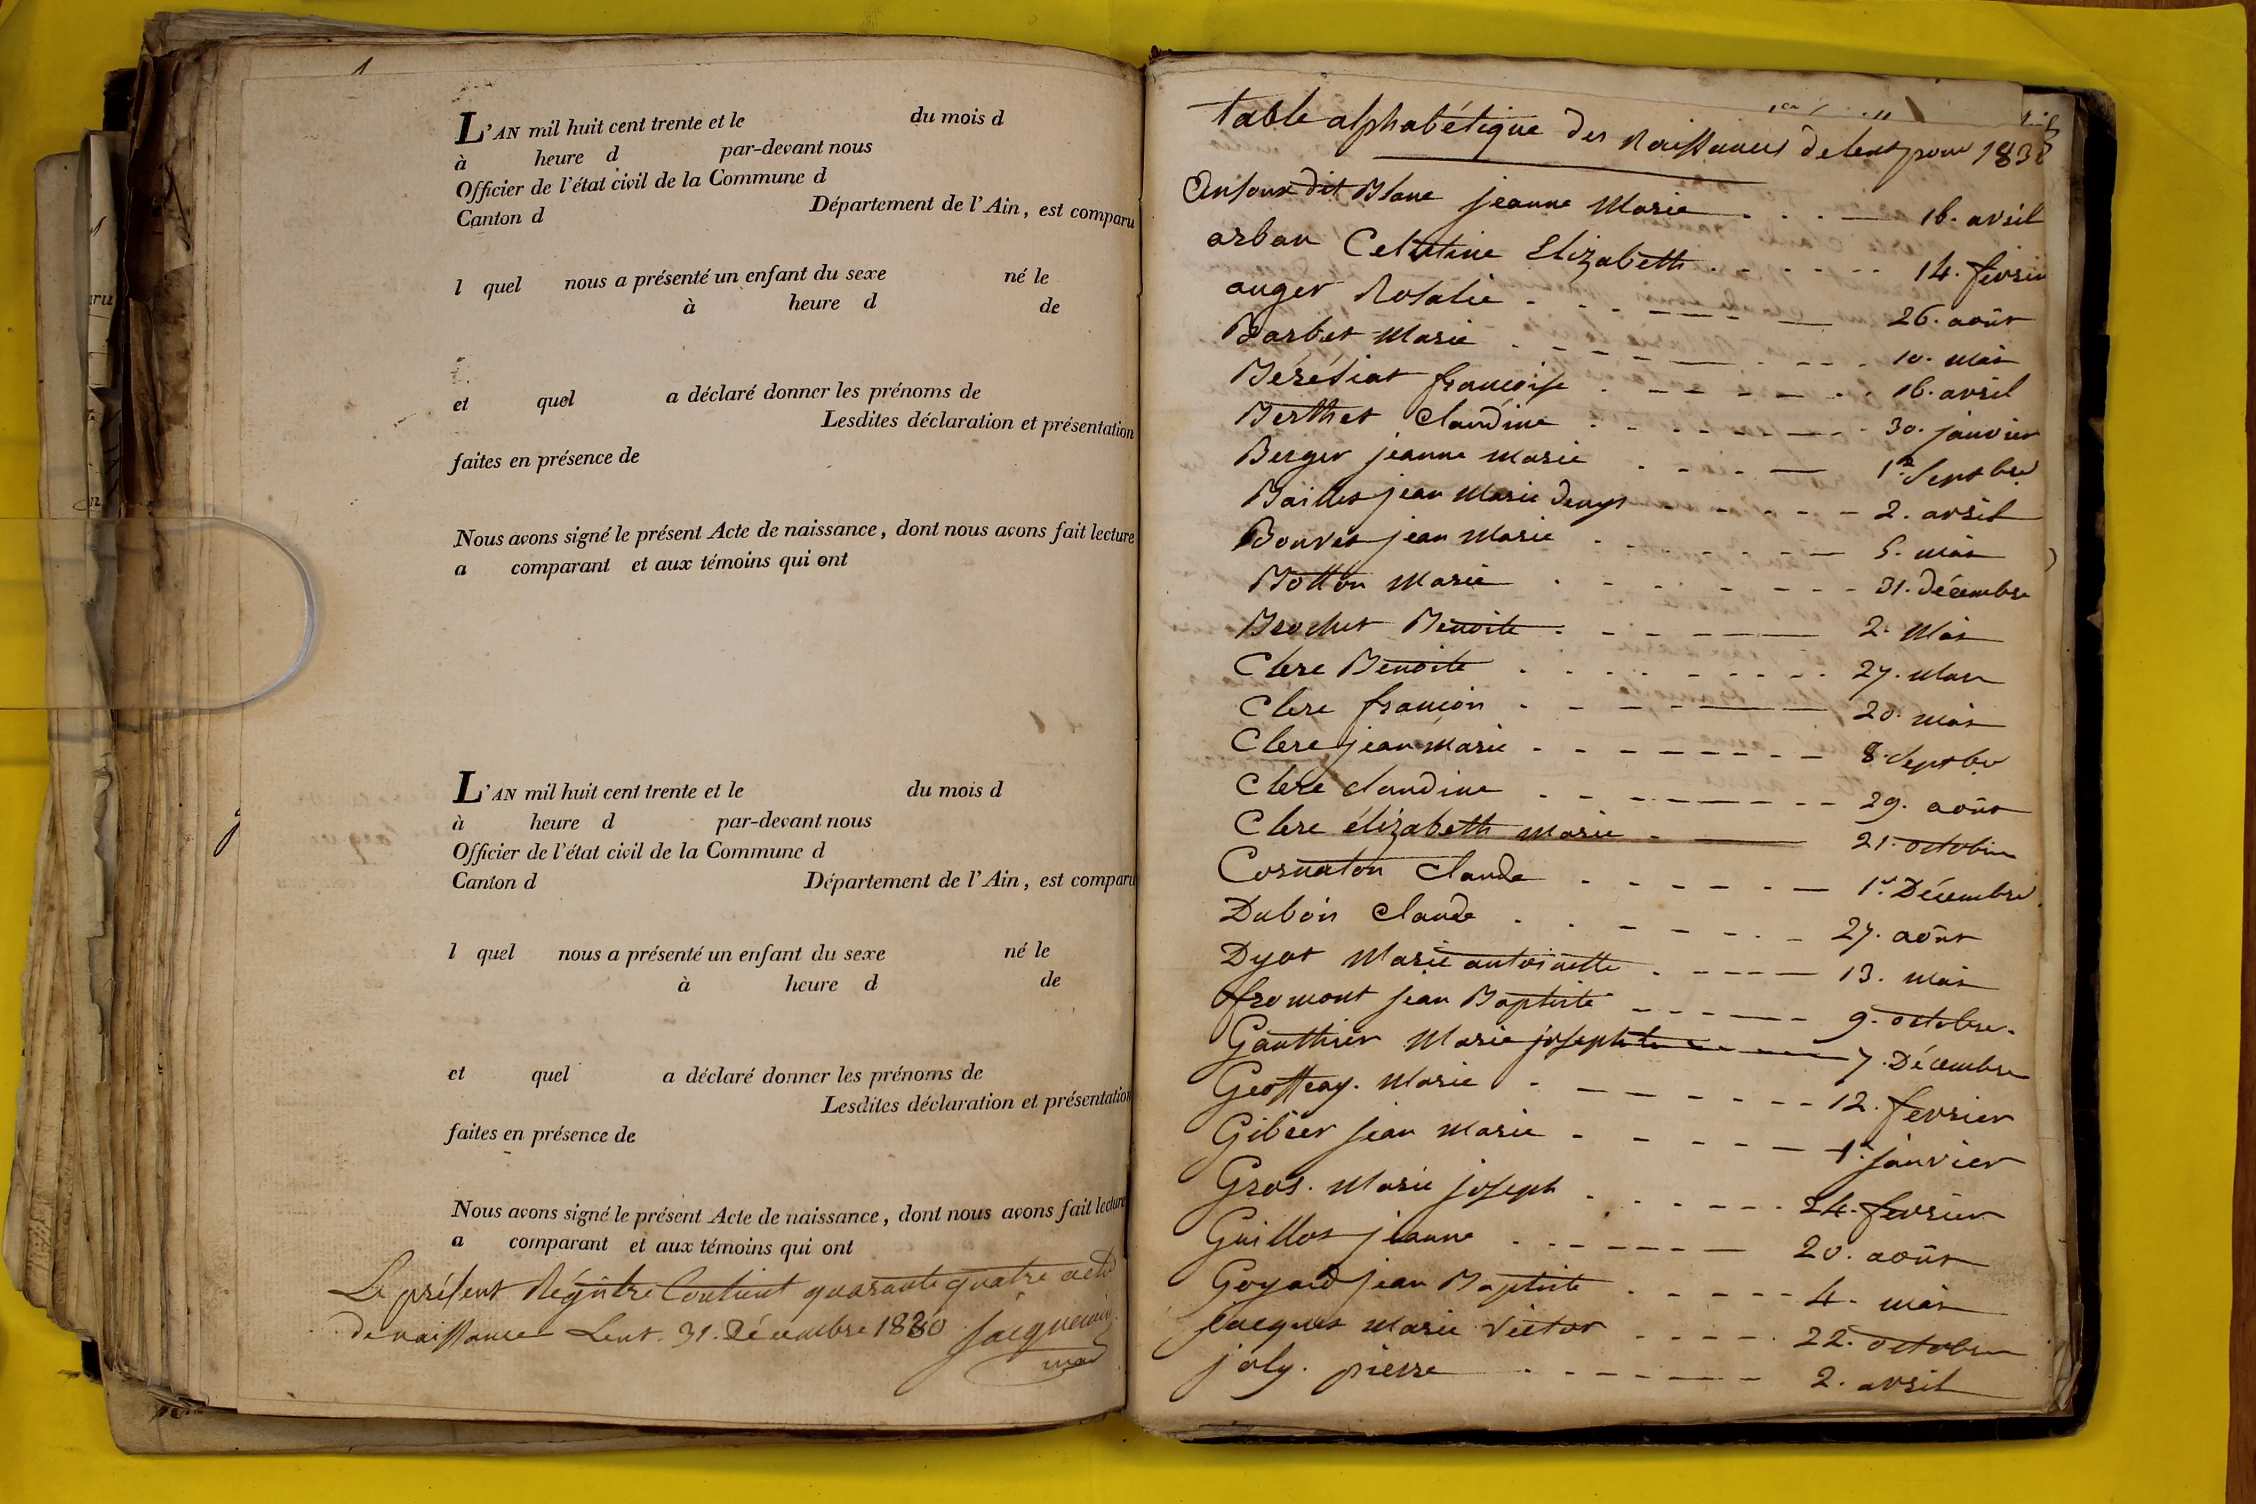 L'AN mil huit cent trente et le du mois d
à heure d par-devant nous
Officier de l'état civil de la Commune d
Canton d Département de l'Ain, est comparu
l quel nous a présenté un enfant du sexe né le
à heure d de
et quel a déclaré donner les prénoms de
Lesdites déclaration et présentation
faites en présence de
Nous avons signé le présent Acte de naissance, dont nous avons fait lecture
a comparant et aux témoins qui ont
L'AN mil huit cent trente et le du mois d
à heure d par-devant nous
Officier de l'état civil de la Commune d
Canton d Département de l'Ain, est comparu
l quel nous a présenté un enfant du sexe né le
à heure d de
et quel a déclaré donner les prénoms de
Lesdites déclaration et présentation
faites en présence de
Nous avons signé le présent Acte de naissance, dont nous avons fait lecture
a comparant et aux témoins qui ont
Le présent Régistre Contient quarante quatre acte
de naissance Lent. 31. Décembre 1830 Jacquemin
table alphabétique des Naissances de lent pour
dit Blanc jeanne Marie 16. avril
arban Celestine Elizabeth 14. fevrier
auger Rosalie 26. août
Barbet Marie 10. mai
Bérétiat françoise 16. avril
Berthet Claudine 30. janvier
Berger jeanne marie 1er Septbre
Baillet jean Marie denys 2. avril
Bouvet jean Marie 5. mai
Botton Marie 31. Décembre
Brochet Benoite 2. Mai
Clerc Benoite 27. Mars
Clerc françois 20. mai
Clerc jean Marie 8. Septbre
Clerc claudine 29. août
Clerc élizabeth Marie 21. octobre
Cornaton Claude 1er Décembre
Dubois Claude 27. août
Dyot Marie antoinette 13. mai
fromont jean Baptiste 9. octobre.
Gauthier Marie josephte 7. Décembre
Geoffray. Marie 12. fevrier
Gibier jean Marie 1er janvier
Gros. Marie joseph 24. fevrier
Guillot jeanne 20. août
Goyard jean Baptiste 4. mai
jacquet Marie Victor 22. octobre
joly. pierre 2. avril